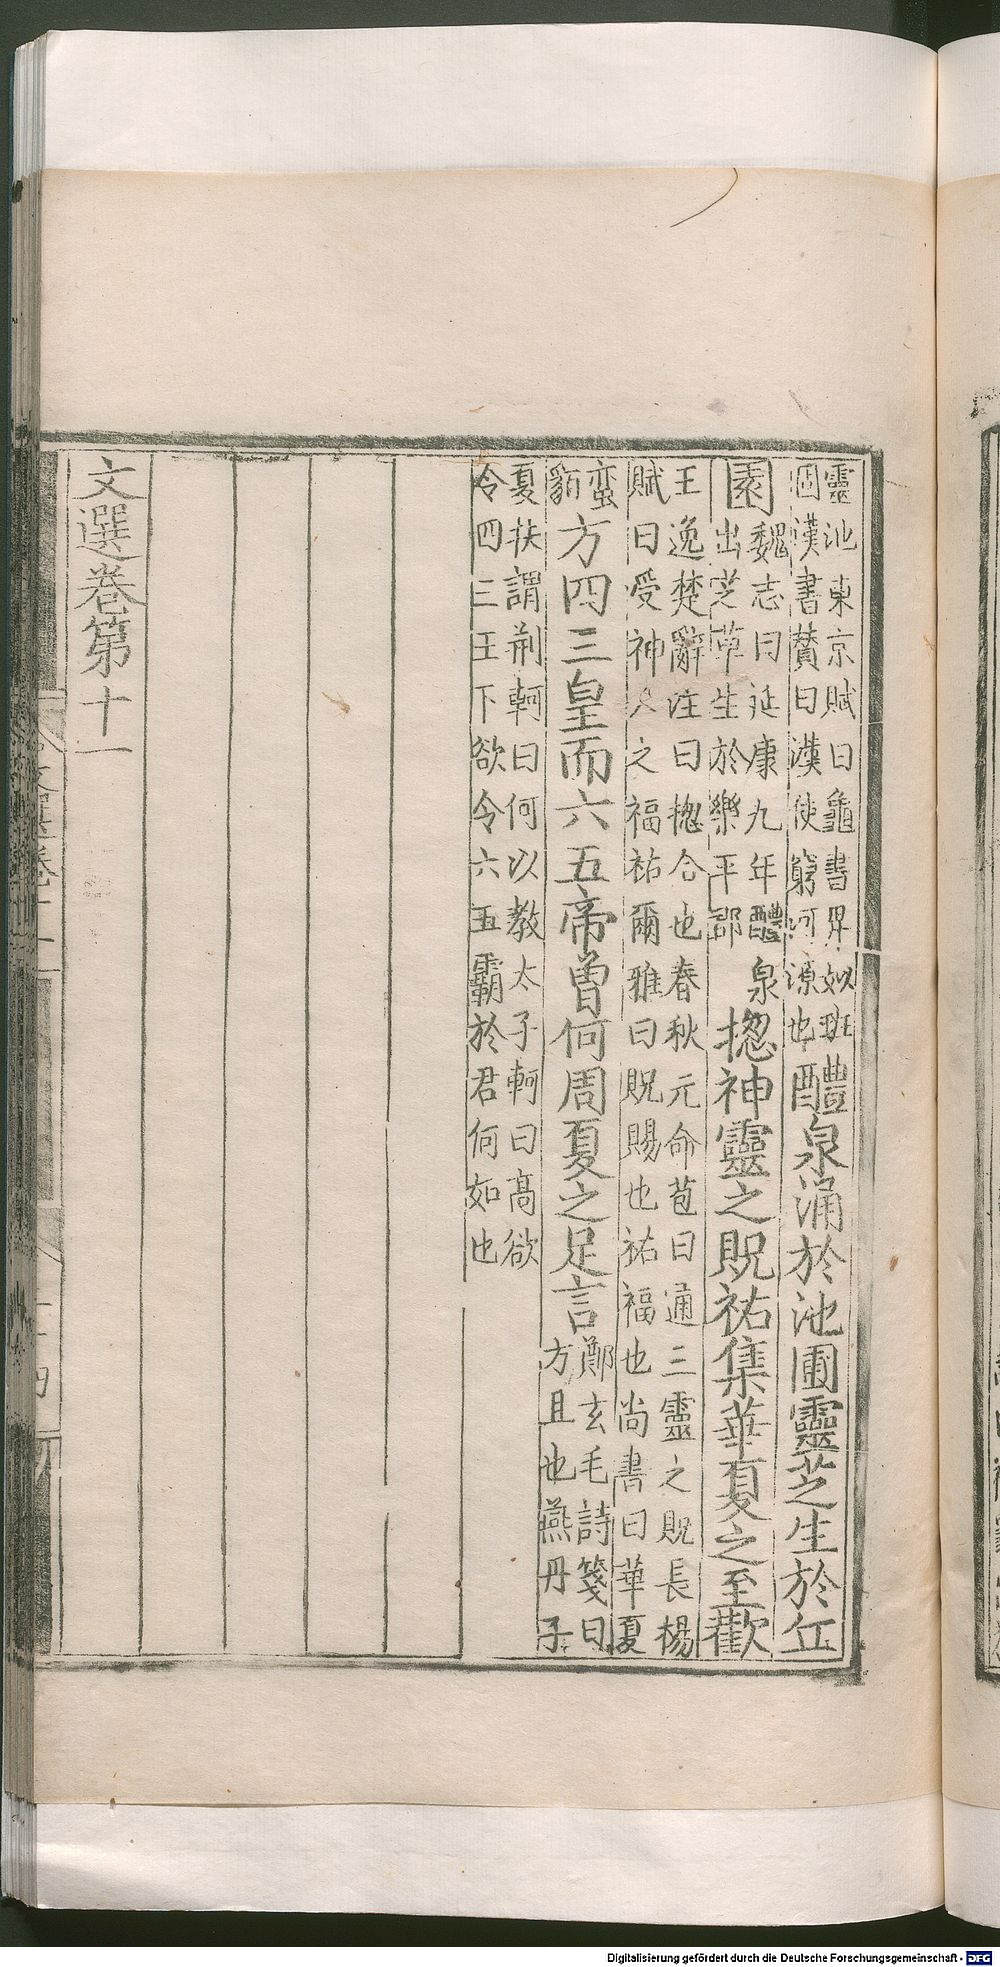 靈池東京賦曰龜書畀姒班
固漢書贊曰漢使窮河源也
醴泉涌於池圃靈芝生於丘
園
魏志曰延康九年醴泉
出芝草生於樂平郡
揔神靈之貺祐集華夏之至歡
王逸楚辭注曰揔合也春秋元命苞曰通三靈之貺長楊
賦曰受神人之福祐爾雅曰貺賜也祐福也尚書曰華夏
蛮
貊
方四三皇而六五帝曽何周夏之足言
鄭玄毛詩箋曰
方且也燕丹子
夏扶謂荆軻曰何以教太子軻曰高欲
令四三王下欲令六五霸於君何如也
文選卷第十一
文選卷十一
十四
Digitalisierung gefördert durch die Deutsche Forschungsgemeinschaft - DFG